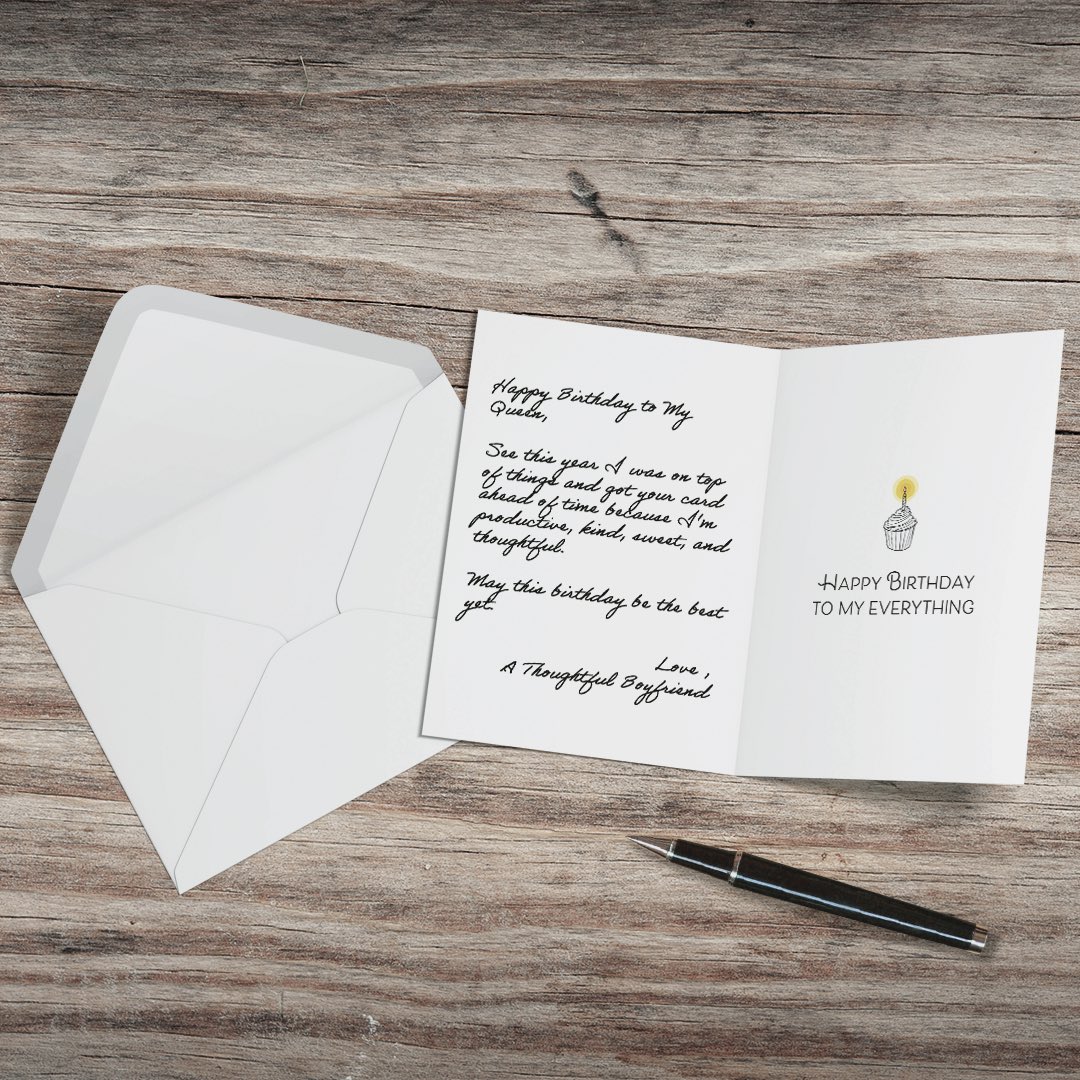 Happy Birthday to My
Queen,
See this year I was on top
of things and got your card
ahead of time because I'm
productive, kind, sweet, and
thoughtful.
May this birthday be the best
yet.
Love,
A Thoughtful Boyfriend
HAPPY BIRTHDAY
TO MY EVERYTHING